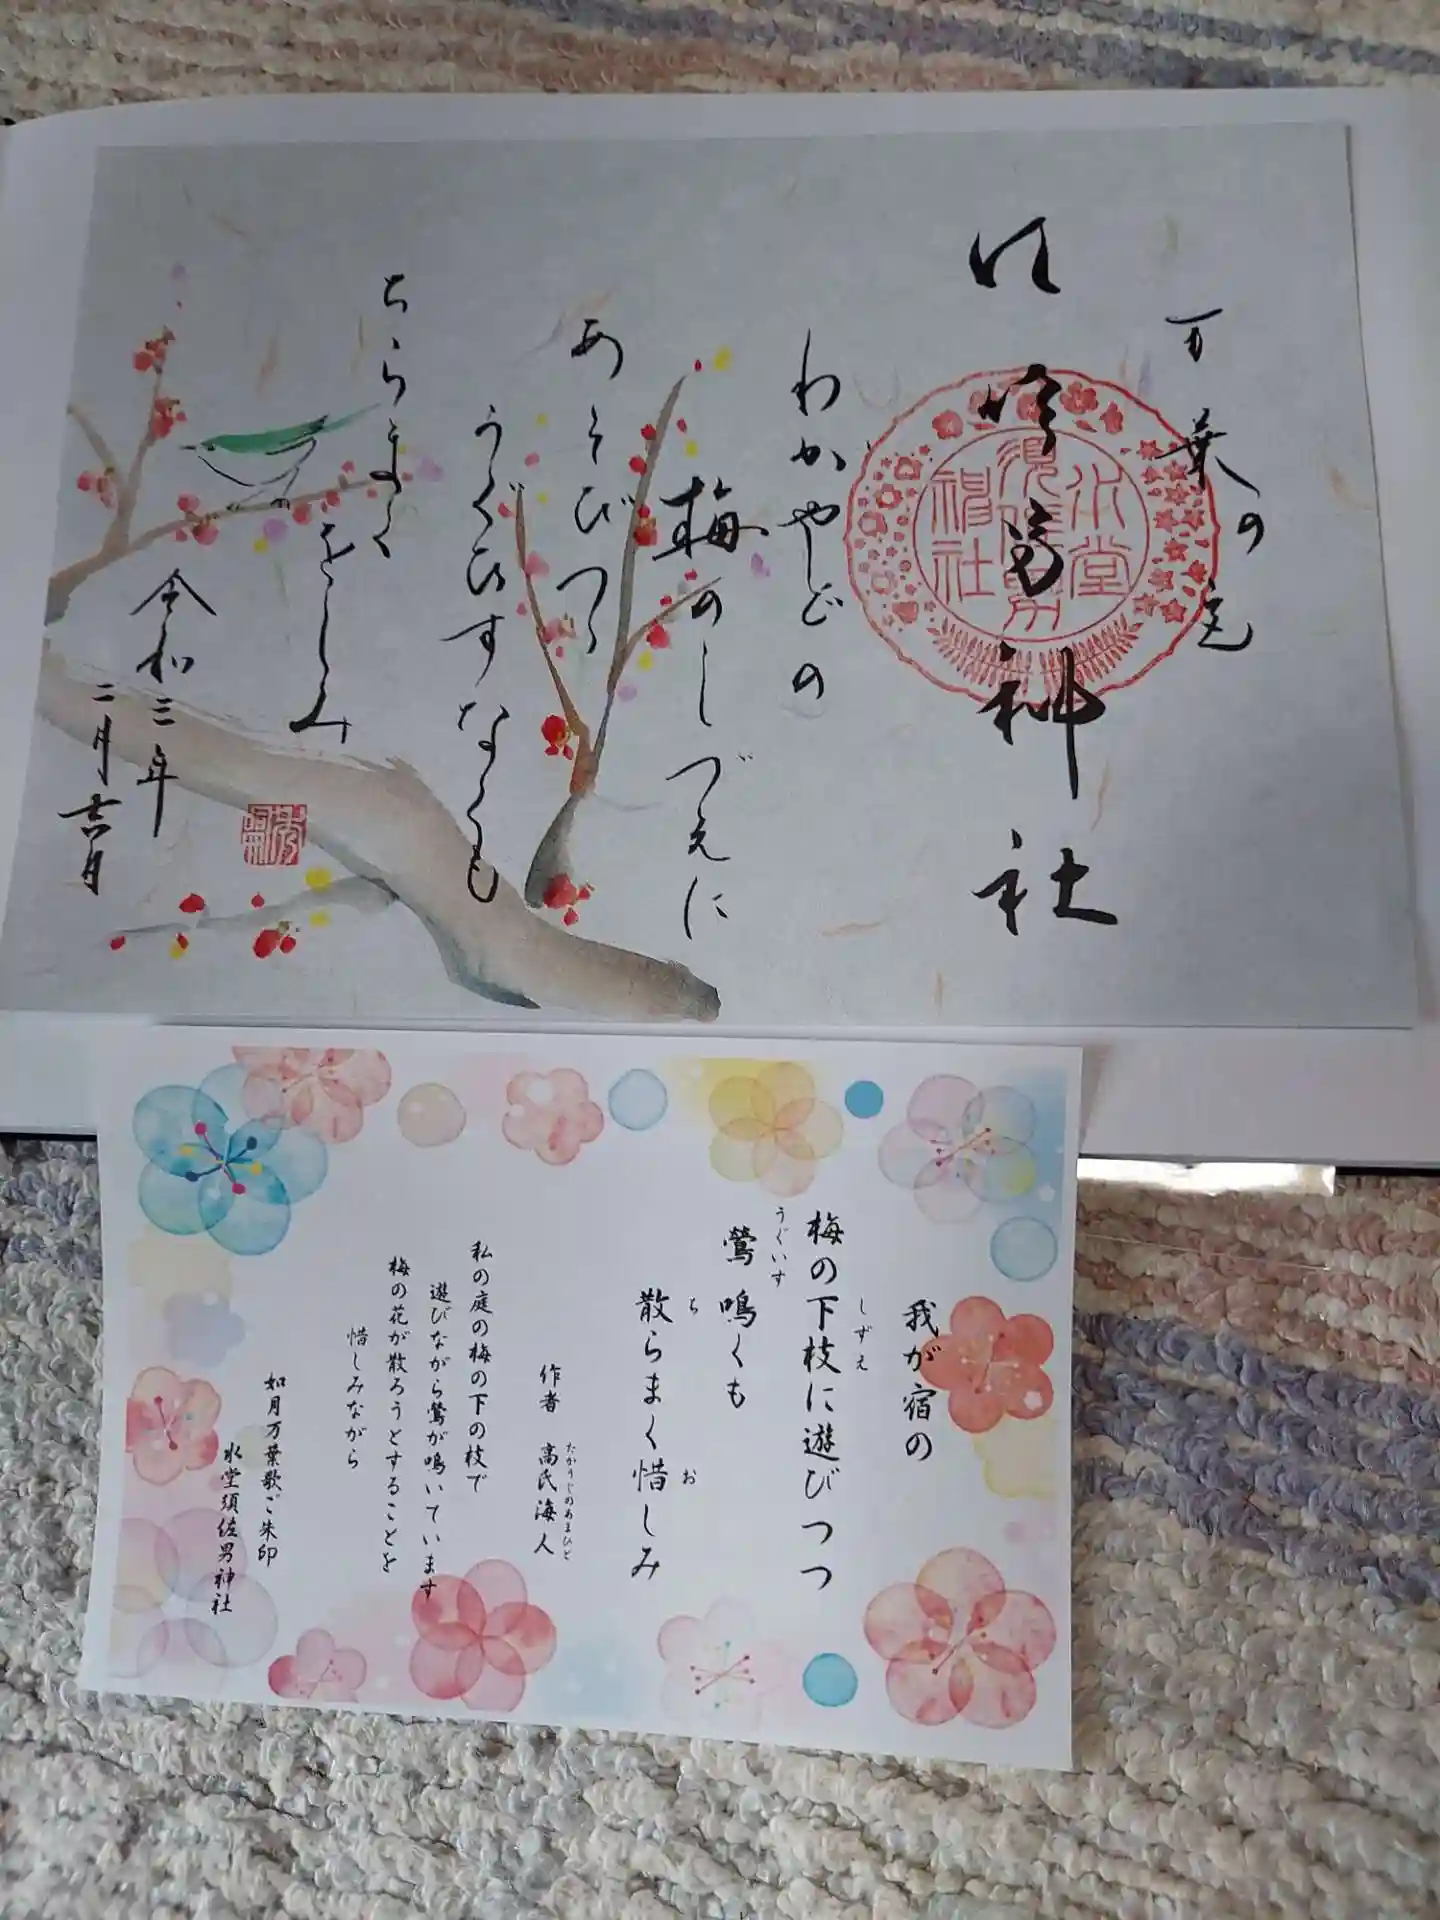 万葉の苑
神社
水堂
須佐男
神社
わかやどの
梅のしづえに
あそびつゝ
うぐひすなくも
ちらまく
をしみ
令和三年
二月吉日
我が宿の
梅の下枝に遊びつつ
しずえ
鶯鳴くも
うぐいす
散らまく惜しみ
ち
お
作者 高氏海人
たかうじのあまひと
私の庭の梅の下の枝で
遊びながら鶯が鳴いています
梅の花が散ろうとすることを
惜しみながら
如月万葉歌ご朱印
水堂須佐男神社